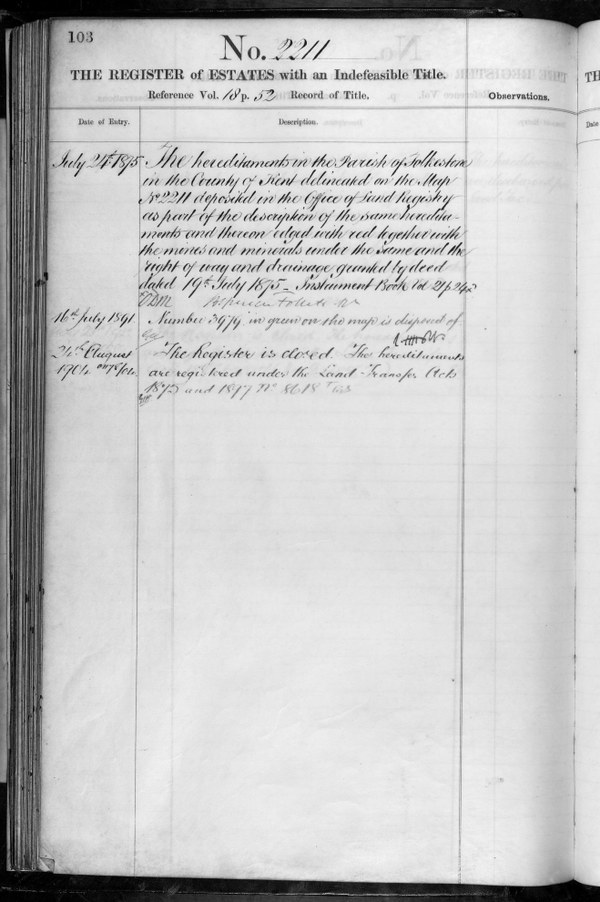 103
No. 2211
THE REGISTER of ESTATES with an Indefeasible Title.
Reference Vol. 18 p. 52 Record of Title.
Observations.
Date of Entry.
Description.
July 24th 1875 The hereditaments in the Parish of Folkestone
in the County of Kent delineated on the Map
No 2211 deposited in the Office of Land Registry
as part of the description of the same heredita-
ments and thereon edged with red together with
the mines and minerals under the same and the
right of way and drainage granted by deed
dated 19th July 1875 - Instrument Book Vol 21 p
16th July 1891 Number 3979 in green on the map is disposed of
24th August The Register is closed The hereditaments
1904 are registered under the Land Transfer Acts
1875 and 1897 No 8618
TH